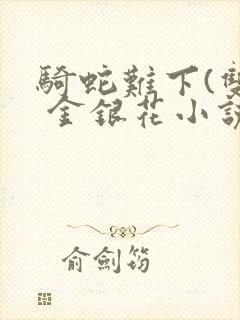 騎蛇難下(雙
金銀花小説
俞劍筠